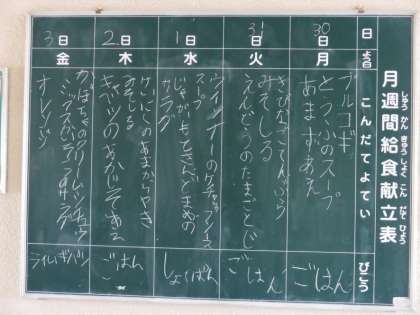 月週間給食献立表
しゅうかんきゅうしょくこんだてひょう
日
よう日
こんだてよてい
びこう
30日
月
プルコギ
とうふのスープ
あまずあえ
ごはん
31日
火
きびなごてんぷら
みそしる
えんどうのたまごとじ
ごはん
1日
水
ウインナーのケチャップソース
スープ
じゃがいもときんときまめの
サラダ
しょくぱん
2日
木
けいにくのあまからやき
みそしる
キャベツのあかじそあえ
ごはん
3日
金
かぼちゃのクリームシチュウ
ミックスビーンズサラダ
オレンジ
ライむぎパン